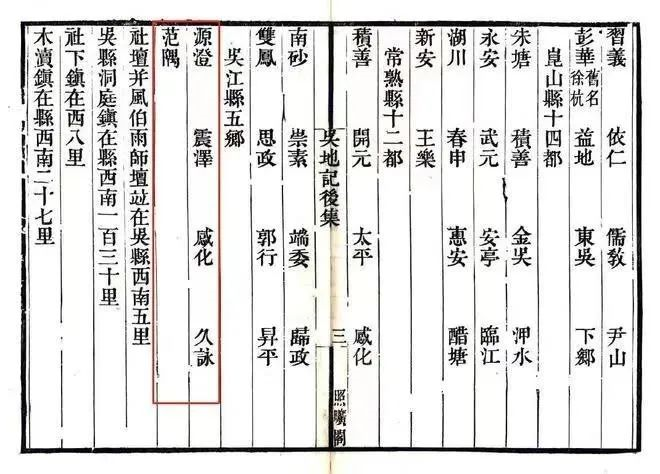 習義 依仁 儒教 尹山
彭華舊名徐杭 益地 東吳 下鄉
崑山縣十四都
朱塘 積善 金吳 㳌水
永安 武元 安亭 臨江
湖川 春申 惠安 醋塘
新安 王樂
常熟縣十二都
積善 開元 太平 感化
吳地記後集 三 照曠閣
南砂 崇素 端委 歸政
雙鳳 思政 郭行 昇平
吳江縣五鄉
源澄 震澤 感化 久詠
范隅
社壇并風伯雨師壇竝在吳縣西南五里
吳縣洞庭鎮在縣西南一百三十里
社下鎮在西八里
木瀆鎮在縣西南二十七里